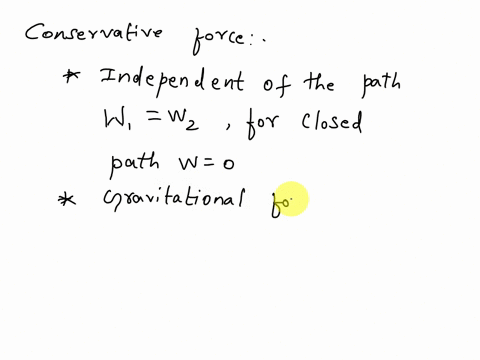 Conservative force:.
* Independent of the path
W₁ = W₂ , for closed
path W = 0
* Gravitational fo